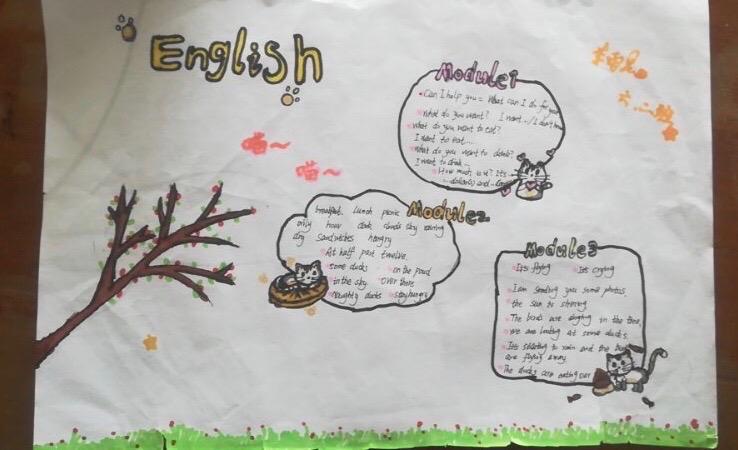 English
Module 1
Can I help you = What can I do for you
What do you want? I want.../I don't
What do you want to eat?
I want to eat...
What do you want to drink?
I want to drink...
How much is it? It's
dollar(s) and
喵~
喵~
六、二班
Module2
breakfast lunch picnic
only hour dark clouds sky
dry sandwiches hungry
At half past twelve.
some ducks on the pond
in the sky over there
Naughty ducks stay hungry
Module3
Its flying Its crying
I am sending you some photos.
the sun is
The birds are singing in the tree.
we are looking at some ducks.
Its starting to rain and the
are flying away.
The ducks are eating our